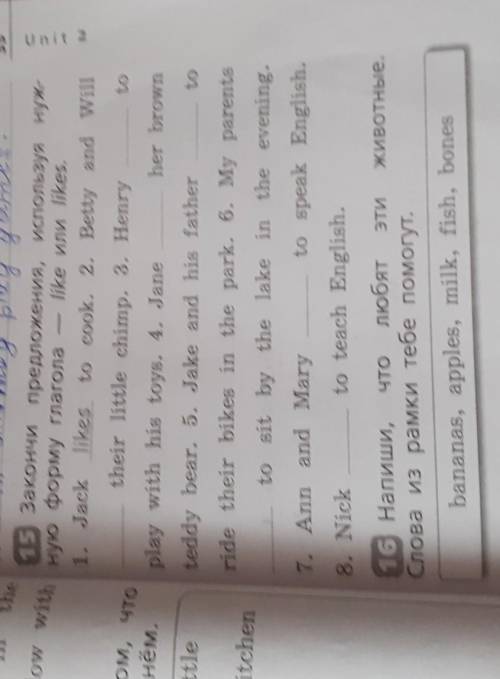 ow with
ом, что
нём.
ttle
itchen
15 Закончи предложения, используя нуж-
ную форму глагола — like или likes.
1. Jack likes to cook. 2. Betty and Will
____ their little chimp. 3. Henry ____ to
play with his toys. 4. Jane ____ her brown
teddy bear. 5. Jake and his father ____ to
ride their bikes in the park. 6. My parents
____ to sit by the lake in the evening.
7. Ann and Mary ____ to speak English.
8. Nick ____ to teach English.
16 Напиши, что любят эти животные.
Слова из рамки тебе помогут.
bananas, apples, milk, fish, bones